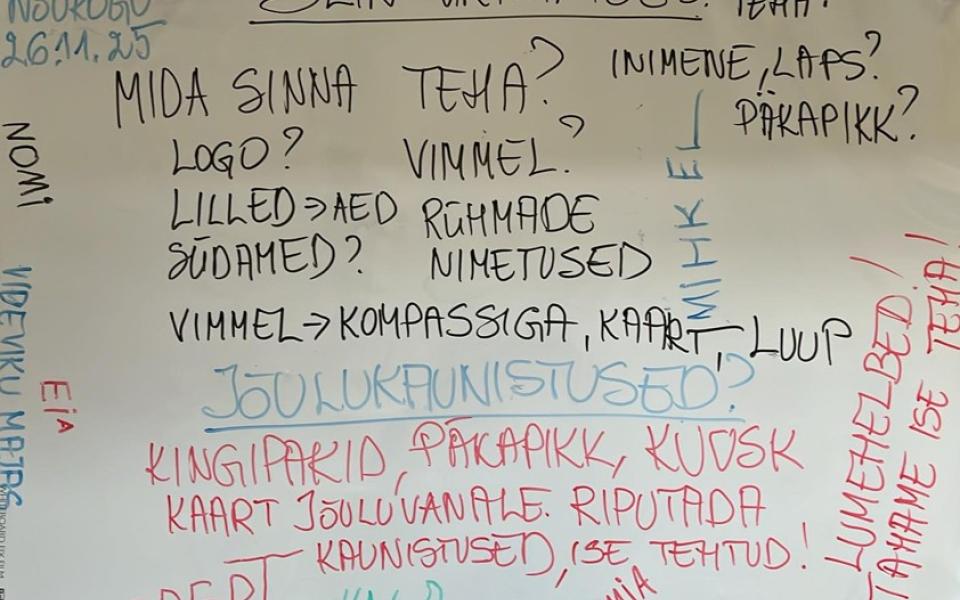 NÕUKOGU
26.11.25
TEHA?
MIDA SINNA TEHA? INIMENE, LAPS?
PÄKAPIKK?
LOGO? VIMMEL?
LILLED → AED RÜHMADE
SÜDAMED? NIMETUSED
VIMMEL → KOMPASSIGA, KAART, LUUP
JÕULUKAUNISTUSED?
KINGIPAKID, PÄKAPIKK, KUUSK
KAART JÕULUVANALE. RIPUTADA
KAUNISTUSED, ISE TEHTUD!
NOMI
VIDEVIKU
EIA
MIHKEL
LUMEHELBED!
TAHAME ISE TEHA!
MIA